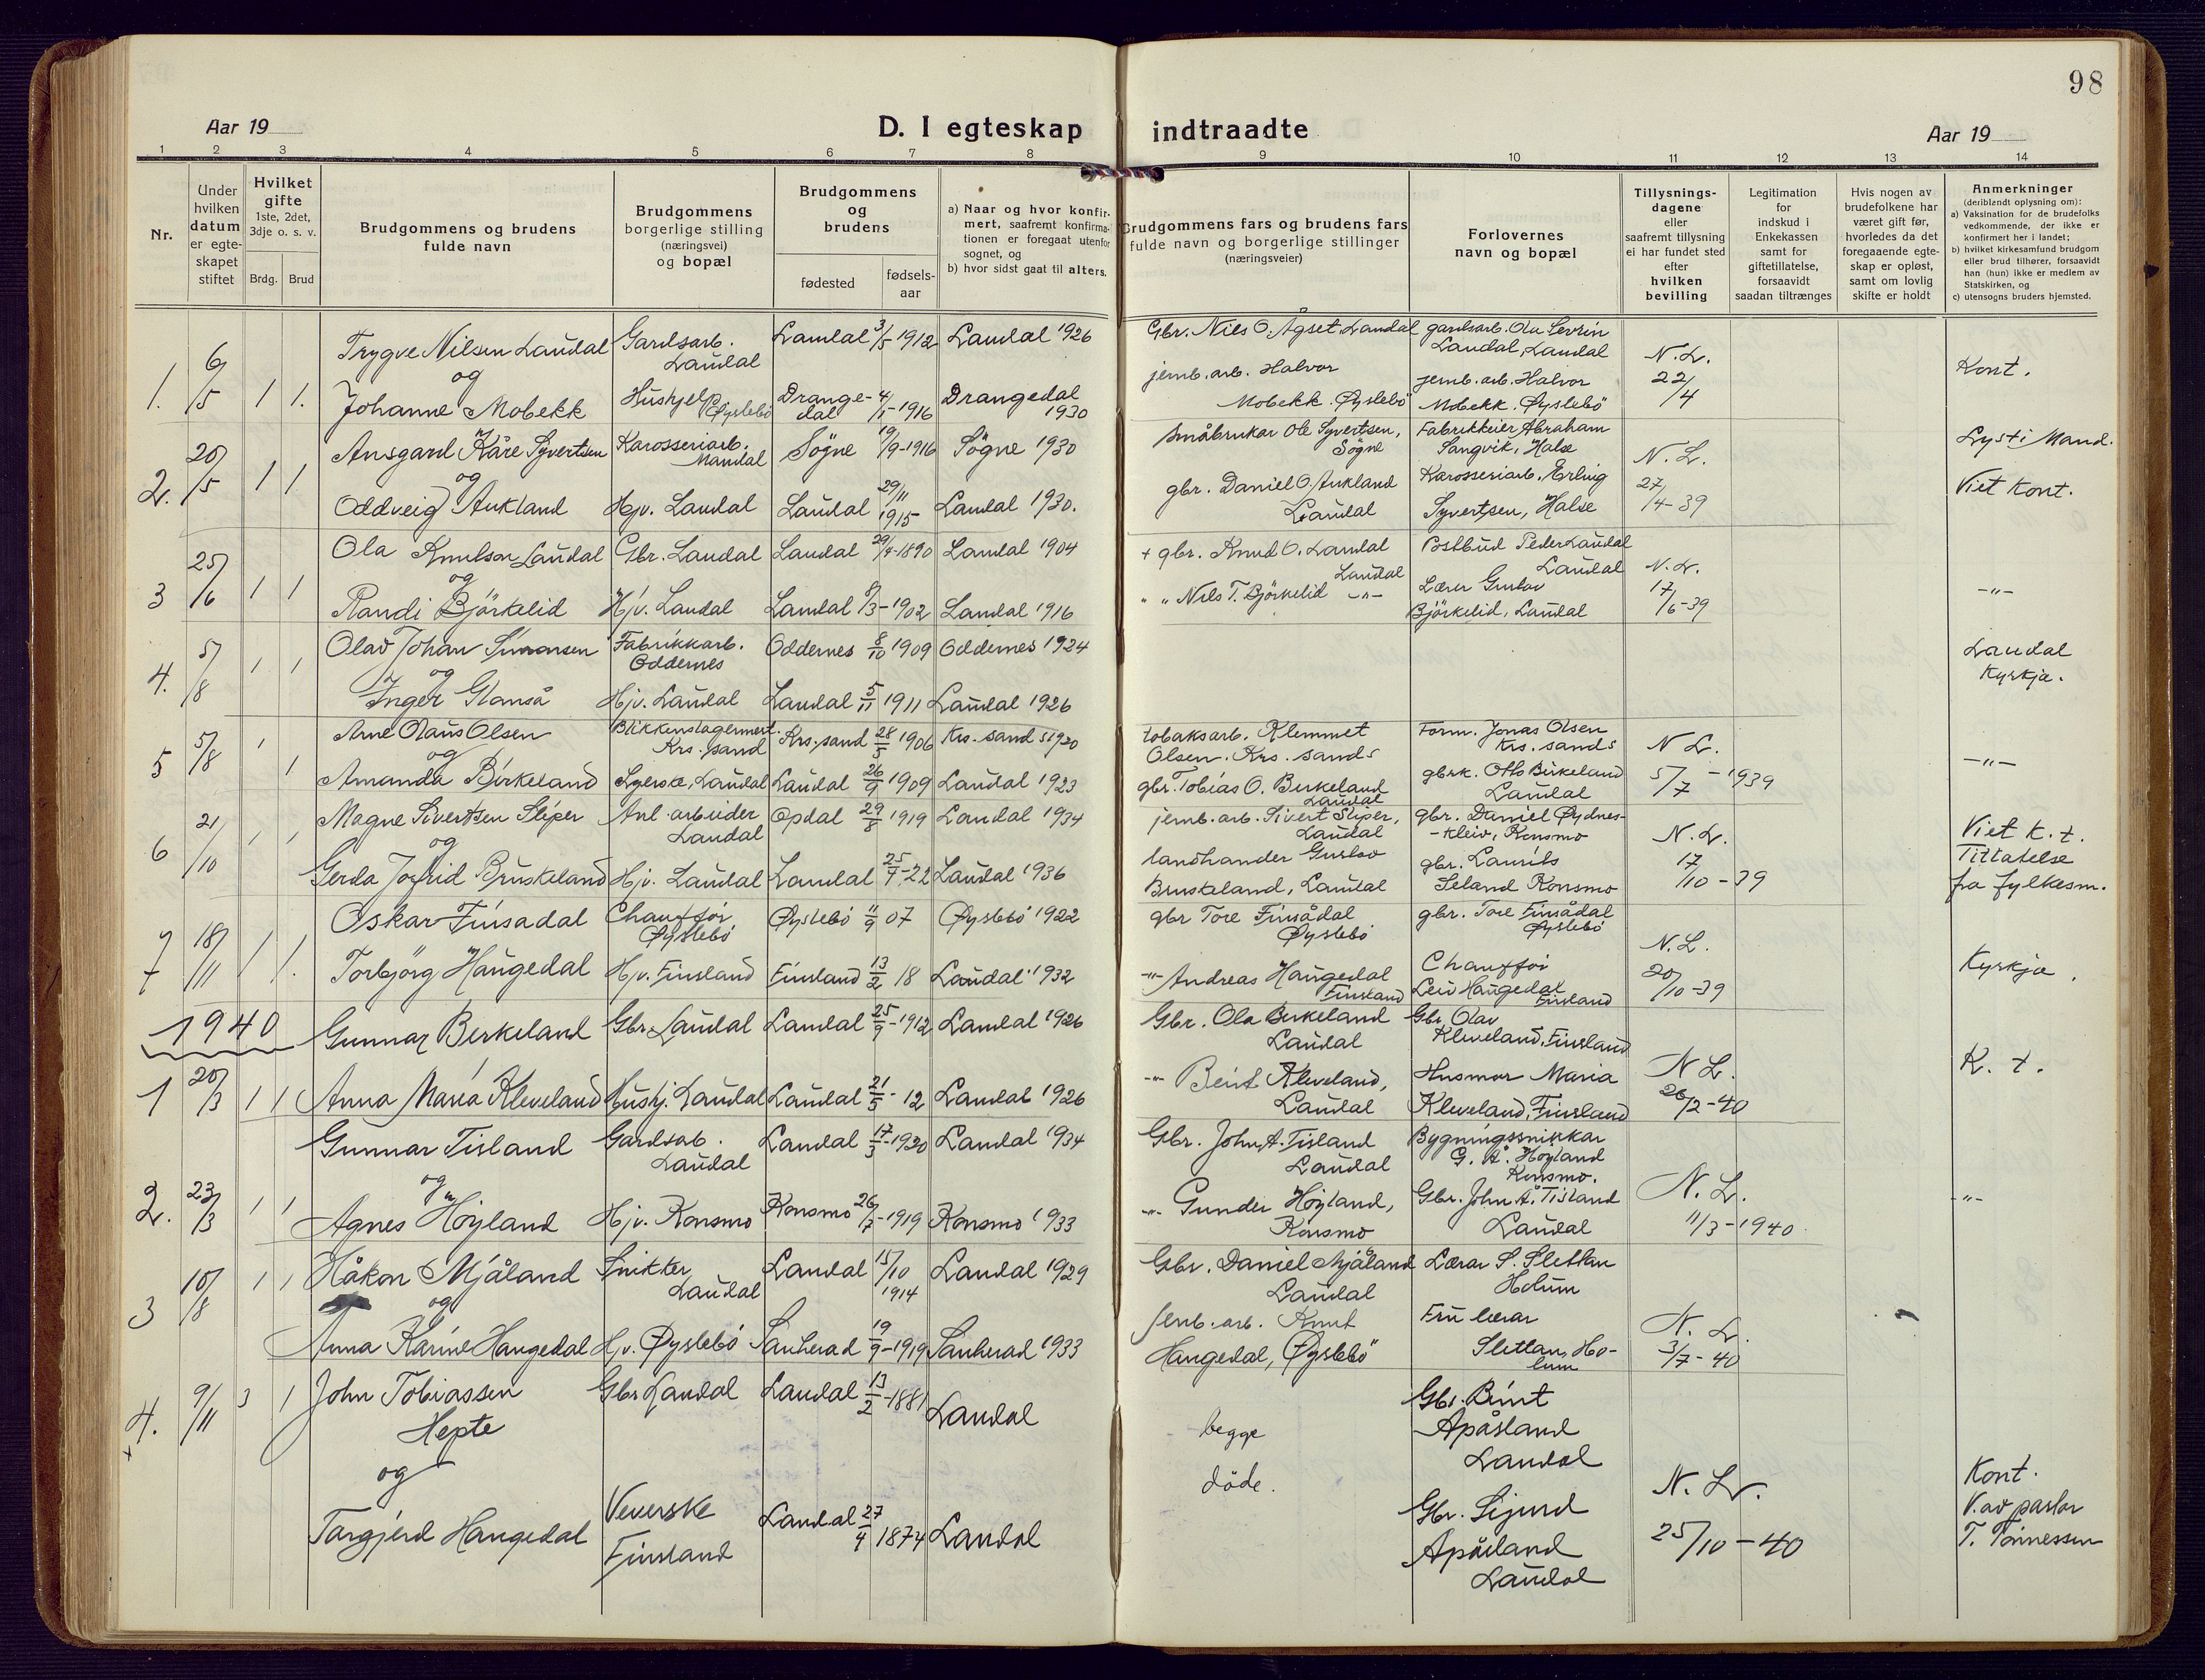 98
Aar 19
D. I egteskap indtraadte
Aar 19
1 2 3 4 5 6 7 8 9 10 11 12 13 14
Nr.
Under
hvilken
datum
er egte-
skapet
stiftet
Hvilket
gifte
1ste, 2det,
3dje o. s. v.
Brdg. Brud
Brudgommens og brudens
fulde navn
Brudgommens
borgerlige stilling
(næringsvei)
og bopæl
Brudgommens
og
brudens
fødested
fødsels-
aar
a) Naar og hvor konfir-
mert, saafremt konfirma-
tionen er foregaat utenfor
sognet, og
b) hvor sidst gaat til alters.
Brudgommens fars og brudens fars
fulde navn og borgerlige stillinger
(næringsveier)
Forlovernes
navn og bopæl
Tillysnings-
dagene
eller
saafremt tillysning
ei har fundet sted
efter
hvilken
bevilling
Legitimation
for
indskud i
Enkekassen
samt for
giftetillatelse,
forsaavidt
saadan tiltrænges
Hvis nogen av
brudefolkene har
været gift før,
hvorledes da det
foregaaende egte-
skap er opløst,
samt om lovlig
skifte er holdt
Anmerkninger
(deriblandt oplysning om):
a) Vaksination for de brudefolks
vedkommende, der ikke er
konfirmert her i landet;
b) hvilket kirkesamfund brudgom
eller brud tilhører, forsaavidt
han (hun) ikke er medlem av
Statskirken, og
c) utensogns bruders hjemsted.
1. 6/5 1 1. Trygve Nilsen Laudal Gardsarb. Laudal Laudal 3/5 1912 Laudal 1926 Gbr. Nils O. Ågset, Laudal gardsarb. Ola Severin Laudal, Laudal N. L. 22/4 Kont.
og
Johanne Mobekk Hushjelp Øyslebö Drange-dal 4/5-1916 Drangedal 1930 jernb. arb. Halvor Mobekk. Øyslebö jernb. arb. Halvor Mobekk. Øyslebö
2. 20/5 1 1 Ansgard Kåre Syvertsen Karosseriarb. Mandal Sögne 19/9-1916 Sögne 1930 Småbrukar Ole Syvertsen, Sögne Fabrikkeier Abraham Sangvik, Halse N. L. 27/4-39 Lyst i Mand.
og
Oddveig Aukland Hjv. Laudal Laudal 29/11 1915 Laudal 1930. gbr. Daniel O. Aukland Laudal Karosseriarb. Erling Syvertsen, Halse Viet Kont.
3 25/6 1 1 Ola Knutson Laudal Gbr. Laudal Laudal 29/4-1890 Laudal 1904 + gbr. Knud O. Laudal Laudal Postbud Peder Laudal Laudal N. L. 17/6-39 -"-
og
Randi Björkelid Hjv. Laudal Laudal 8/3-1902 Laudal 1916 " " Nils T. Björkelid -"- Lærer Gustav Björkelid, Laudal
4. 5/8 1 1 Olav Johan Simonsen Fabrikkarb. Oddernes Oddernes 8/10 1909 Oddernes 1924 Laudal Kyrkja.
og
Inger Glanså Hjv. Laudal Laudal 5/11 1911 Laudal 1926
5 5/8 1 1 Arne Olaus Olsen Blikkenslagermest. Krs. sand Krs. sand 28/5 1906 Krs. sand s 1920 tobaksarb. Klemmet Olsen. Krs. sands Form. Jonas Olsen Krs. sands N L. 5/7-1939 -"-
og
Amanda Birkeland Syerske, Laudal Laudal 26/9 1909 Laudal 1923 gbr. Tobias O. Birkeland Laudal gbrk. Otto Birkeland Laudal
6 21/10 1 1 Magne Sivertsen Sliper Anl. arbeider Laudal Opdal 29/8 1919 Laudal 1934 jernb. arb. Sivert Sliper, Laudal gbr. Daniel Øydnes-kleiv, Konsmo N. L. 17/10-39 Viet k. t.
og
Gerda Jorfrid Bruskeland Hjv. Laudal Laudal 25/4-22 Laudal 1936 landhandler Gustav Bruskeland, Laudal gbr. Laurits Seland Konsmo Tillatelse fra fylkesm.
7 18/11 1 1. Oskar Finsadal Chaufför Øyslebö Øyslebö 11/9 07 Øyslebö 1922 gbr Tore Finsådal Øyslebö gbr. Tore Finsådal Øyslebö N. L. 20/10-39 Kyrkja.
Torbjörg Haugedal Hjv. Finsland Finsland 13/2 18 Laudal 1932 -"- Andreas Haugedal Finsland Chaufför Leiv Haugedal Finsland
1940
1 20/3 1 1 Gunnar Birkeland Gbr Laudal Laudal 25/9-1912 Laudal 1926 Gbr. Ola Birkeland Laudal Gbr Olav Kleveland, Finsland N L. 26/2-40 K. t.
Anna Maria Kleveland Hushj. Laudal Laudal 21/5-12 Laudal 1926 -"- Beint Kleveland, Laudal Husmor Maria Kleveland, Finsland
2. 23/3 1 1 Gunnar Tisland Gardsarb. Laudal Laudal 17/3-1920 Laudal 1934 Gbr. John A. Tisland Laudal Bygningssnikkar G. A. Höyland Konsmo. N. L. 11/3-1940 -"-
og
Agnes Höyland Hjv. Konsmo Konsmo 26/7-1919 Konsmo 1933 -"- Gunder Höyland, Konsmo Gbr. John A. Tisland Laudal
3 10/8 1 1 Håkon Mjåland Snikker Laudal Laudal 15/10 1914 Laudal 1929 Gbr. Daniel Mjåland Laudal Lærar S. Slettan Holum N. L. 3/7-40
og
Anna Karine Haugedal Hjv. Øyslebö Sauherad 19/9-1919 Sauherad 1933 Jernb. arb. Knut Haugedal, Øyslebö Fru lærar Slettan, Ho-lum
4. 9/11 3 1 John Tobiassen Hepte Gbr Laudal Laudal 13/2-1881 Laudal begge döde. Gbr. Beint Apåsland Laudal N. L. 25/10-40 Kont.
og
Targjerd Haugedal Veverske Finsland Laudal 27/4 1874 Laudal Gbr. Sigurd Apåsland Laudal V. av pastor T. Tönnessen